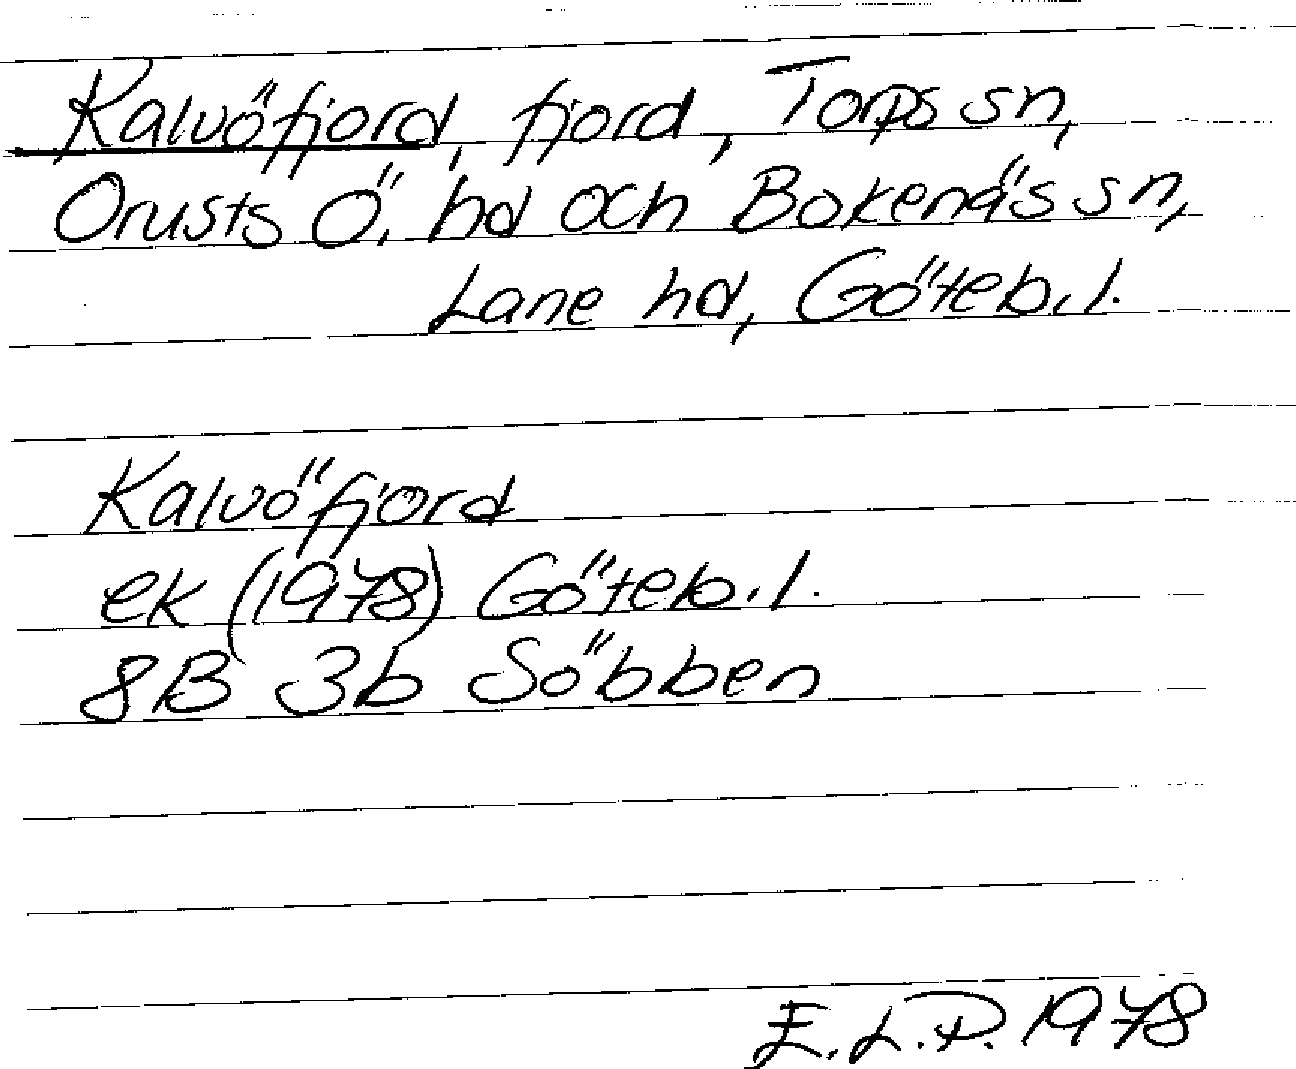 Kalvöfjord, fjord, Torps sn,
Orusts Ö. hd och Bokenäs sn,
Lane hd, Göteb.l.
Kalvöfjord
ek (1978) Göteb.l.
8B 3b Söbben
E.L.P. 1978